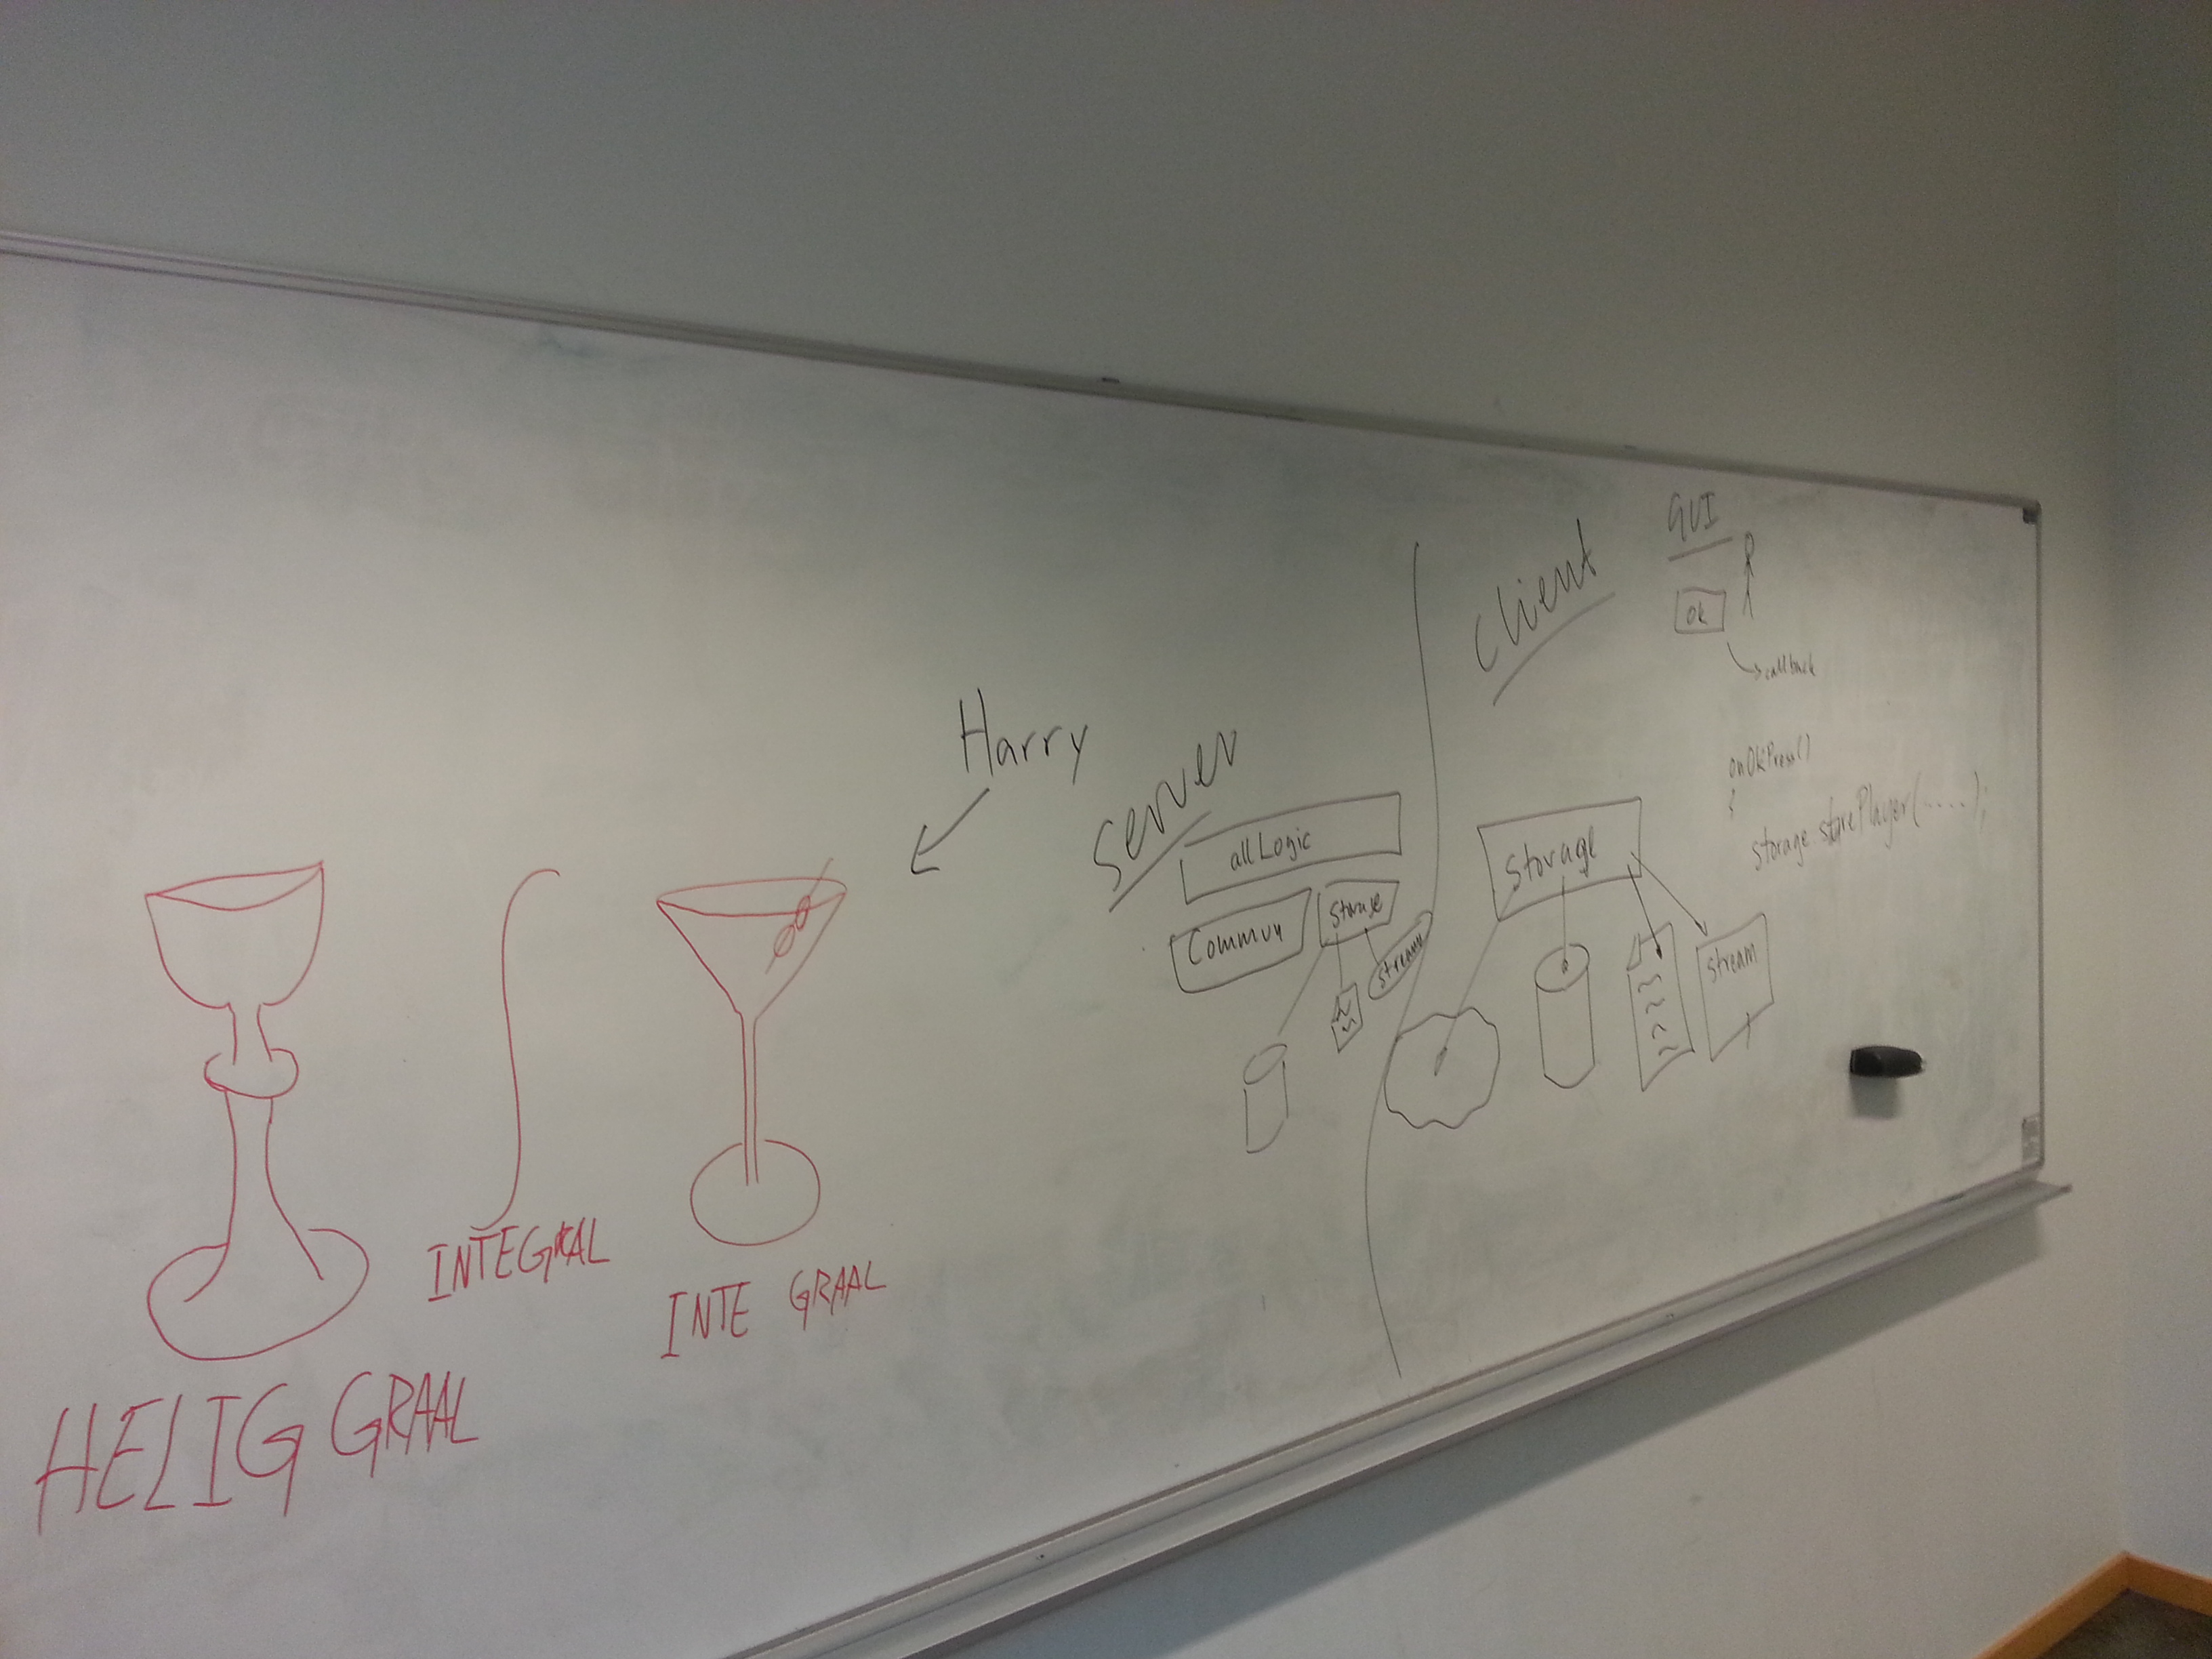 HELIG GRAAL
INTEGRAL
INTE GRAAL
Harry
Server
all Logic
Commun
Storage
Stream
Client
Storage
Stream
GUI
Ok
callback
onOkPress()
{
storage storePlayer(.....);